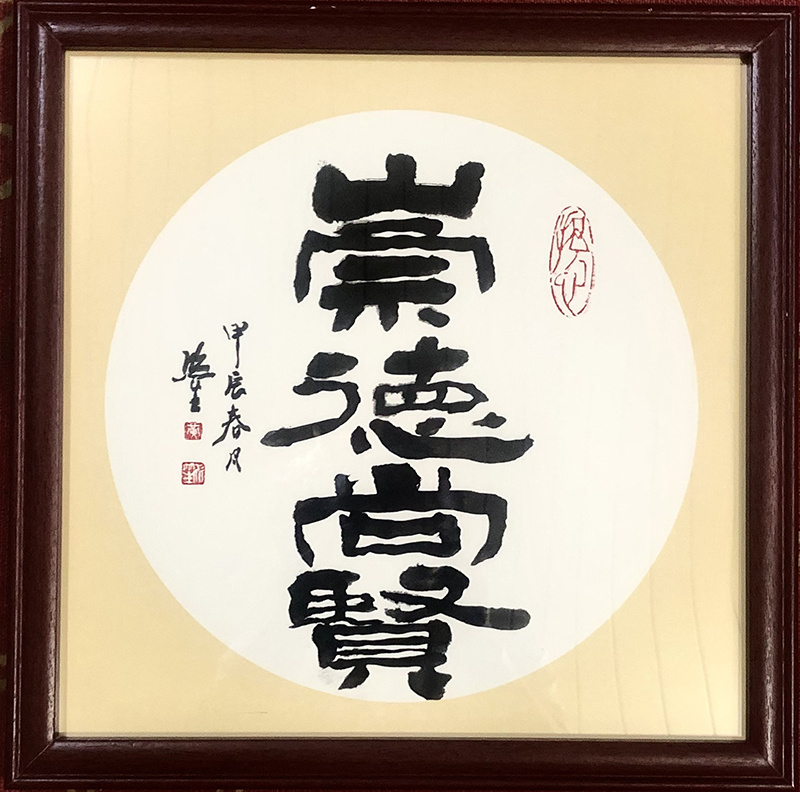 崇德尚賢
甲辰春月